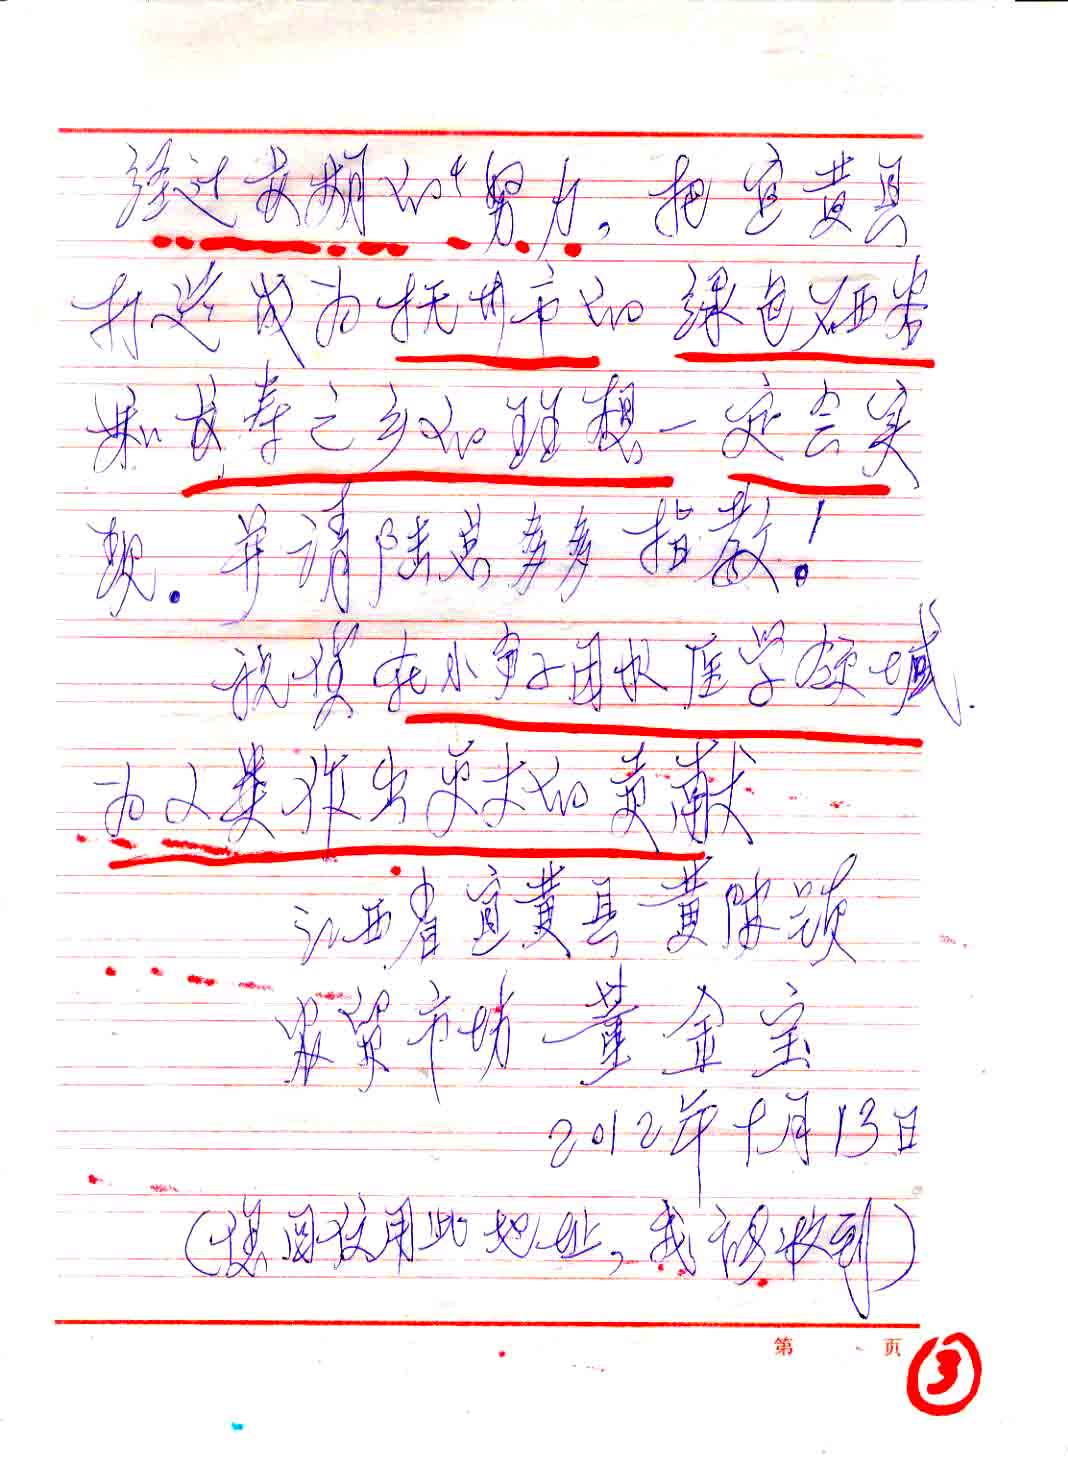 经过长期的努力，把宜黄县
打造成为抚州市的绿色硒米
和长寿之乡的理想一定会实
现．并请陆总多多指教！
祝贵在小分子团水医学领域
为人类作出更大的贡献
江西省宜黄县黄陂镇
农贸市场 董金宝
2012年十月13日
(复函使用此地址，我能收到)
第 页 ③